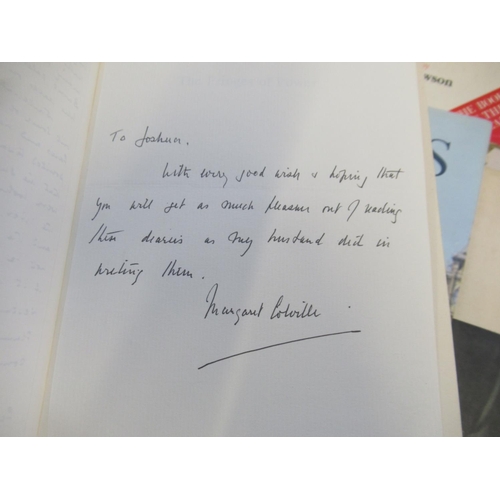 To Joshua.
With every good wish & hoping that
you will get as much pleasure out of reading
these diaries as my husband did in
writing them.
Margaret Colville.
WSON
HE BOO
TH
S